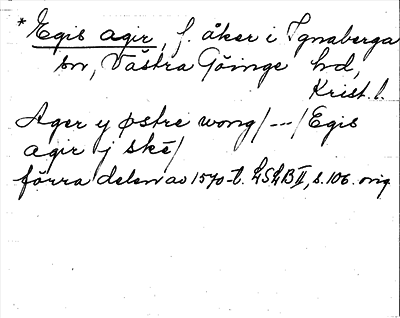 * Egis agir, f. åker i Ignaberga
sn, Västra Göinge hd,
Krist. l.
Ager y østre wong/---/Egis
agir j ské/
förra delen av 1570-t. LSLBII, s. 106. orig